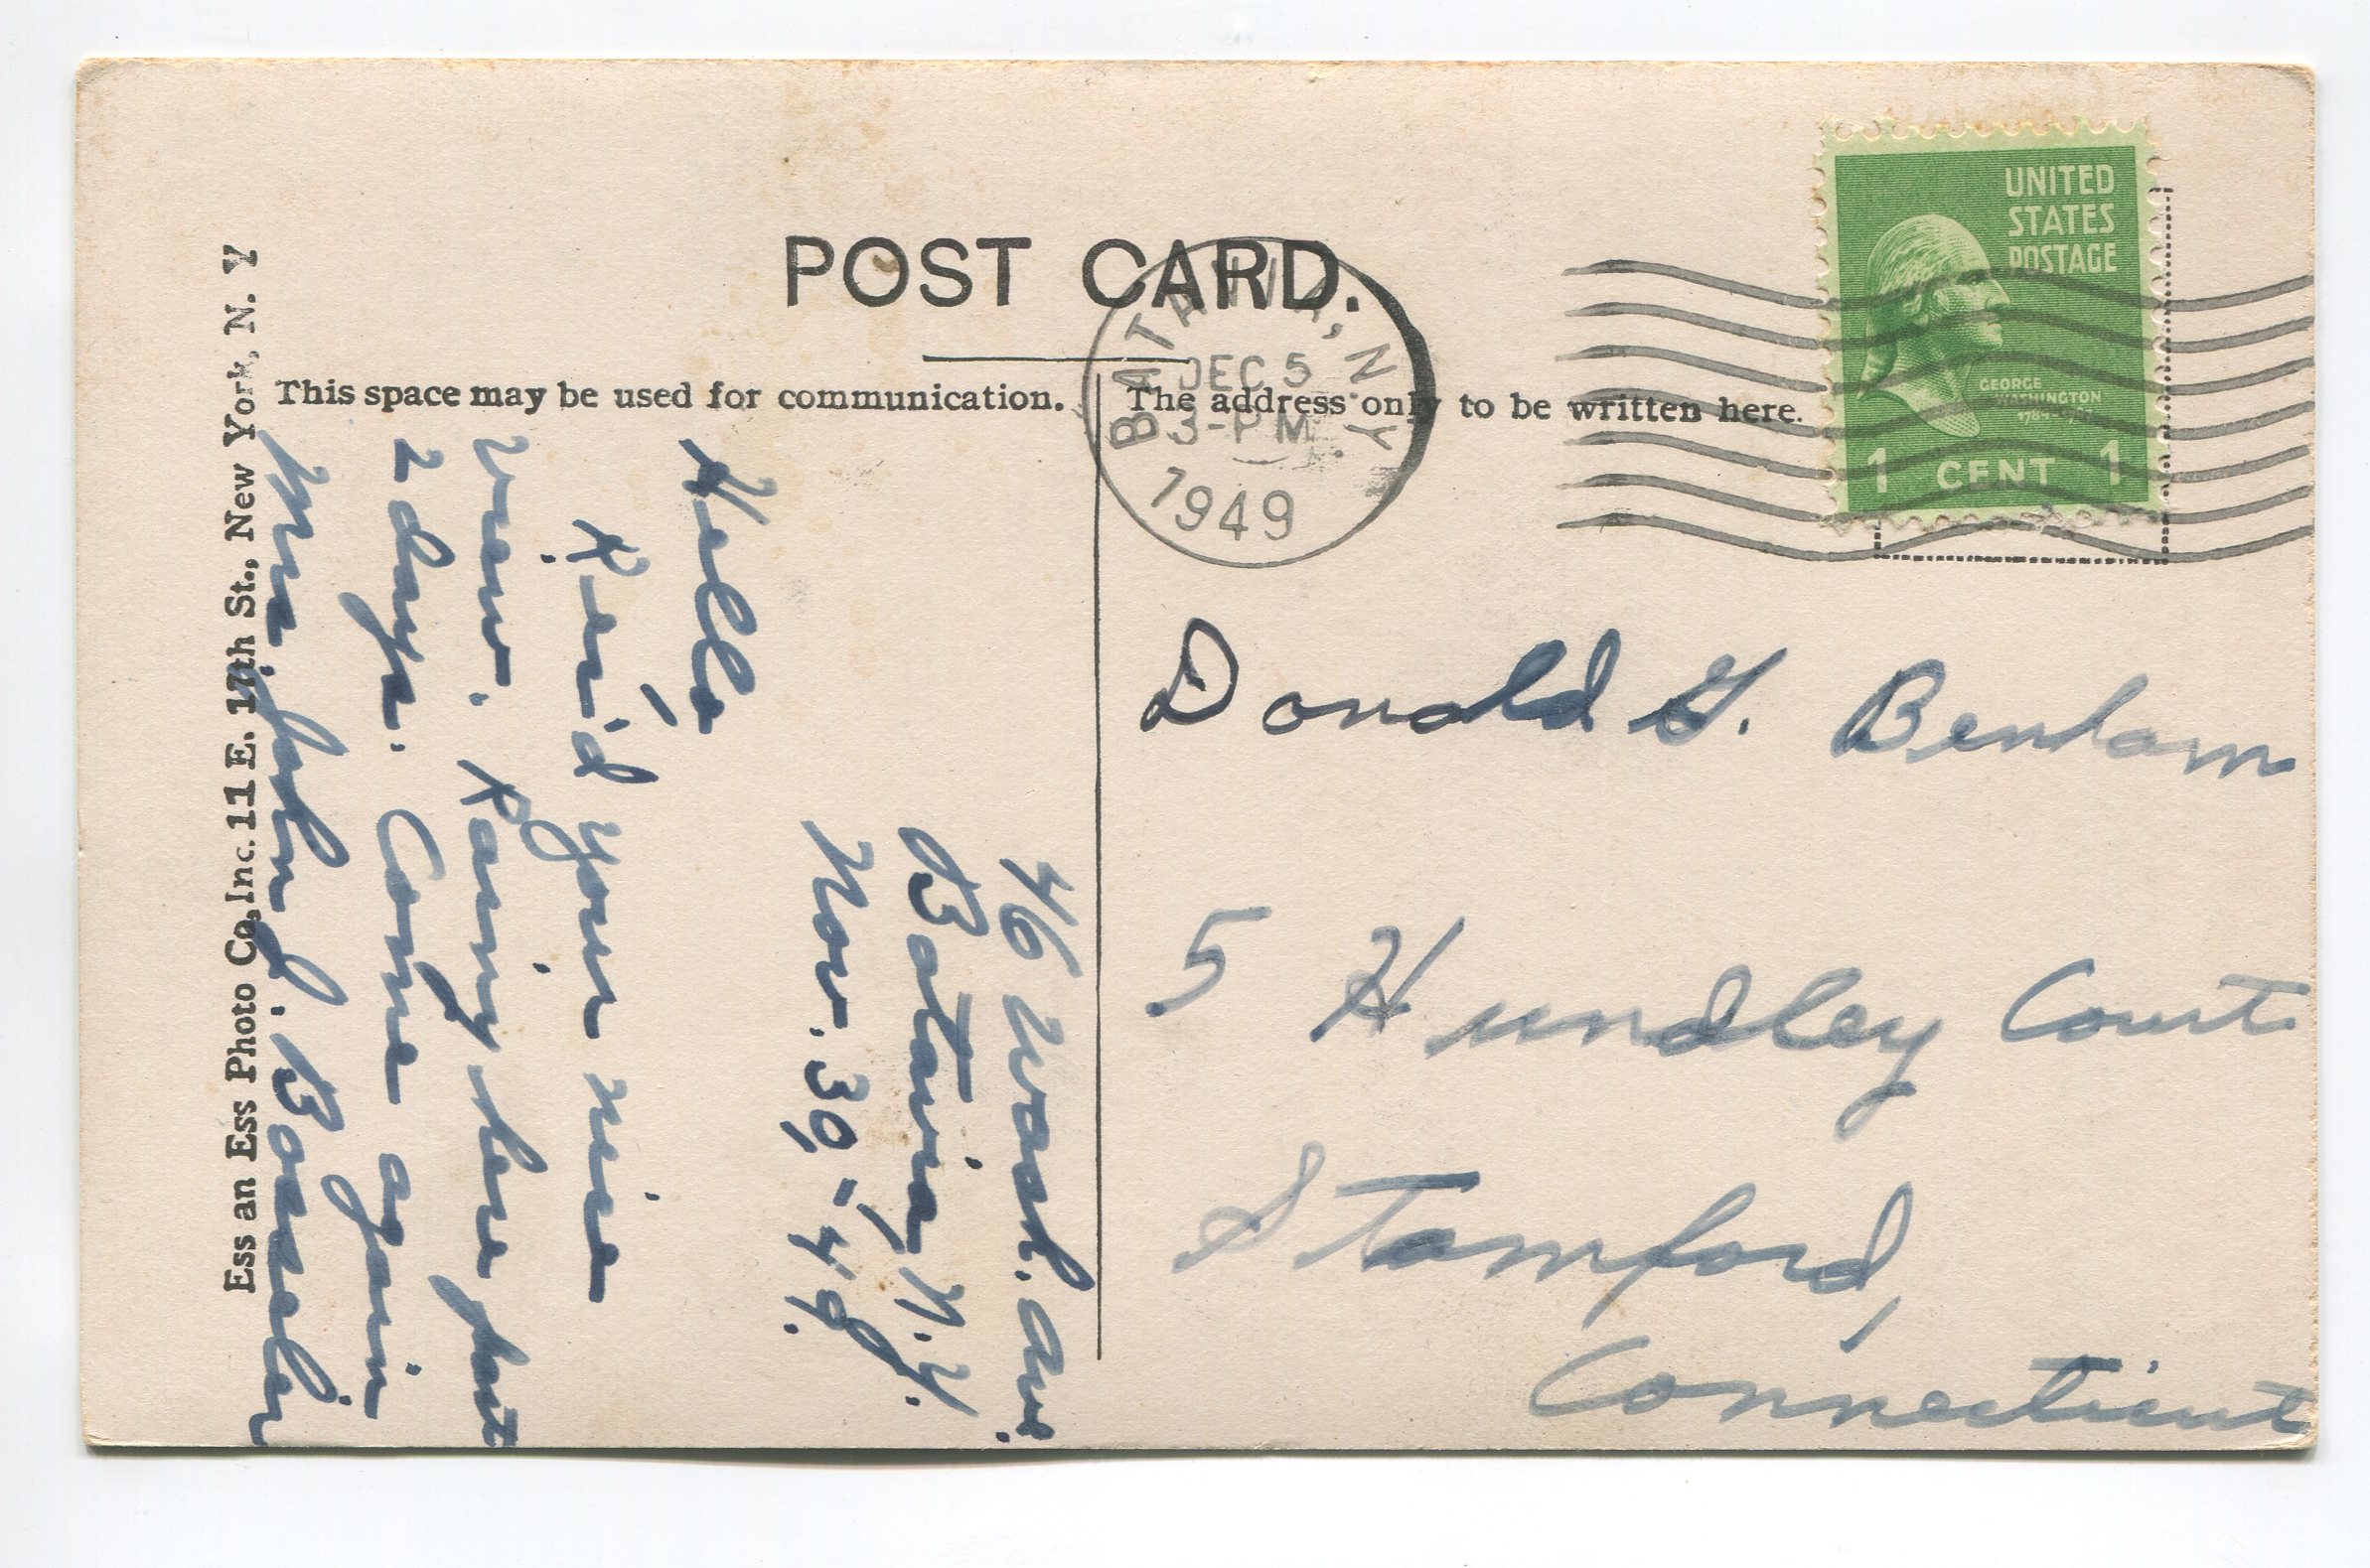 POST CARD.
This space may be used for communication.
The address only to be written here.
UNITED
STATES
POSTAGE
GEORGE
WASHINGTON
1 CENT 1
BATAVIA, N.Y.
DEC 5
3-PM
1949
46 Wash. Ave.
Batavia, N.Y.
Nov. 30,-49.
Hello
Rec'd your nice
view. Rainy here past
2 days. Come again
Mrs. John J.
Donald G. Benham
5 Hundley Court
Stamford,
Connecticut
Ess an Ess Photo Co, Inc. 11 E. 17th St., New York, N. Y